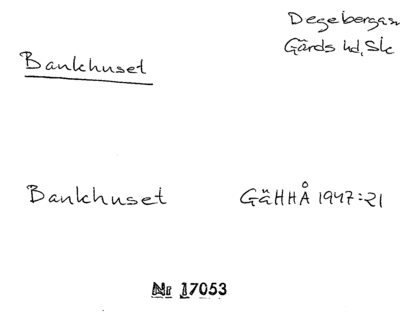 Degeberga sn
Gärds hd, Sk
Bankhuset
Bankhuset GäHHÅ 1947:21
Nr 17053